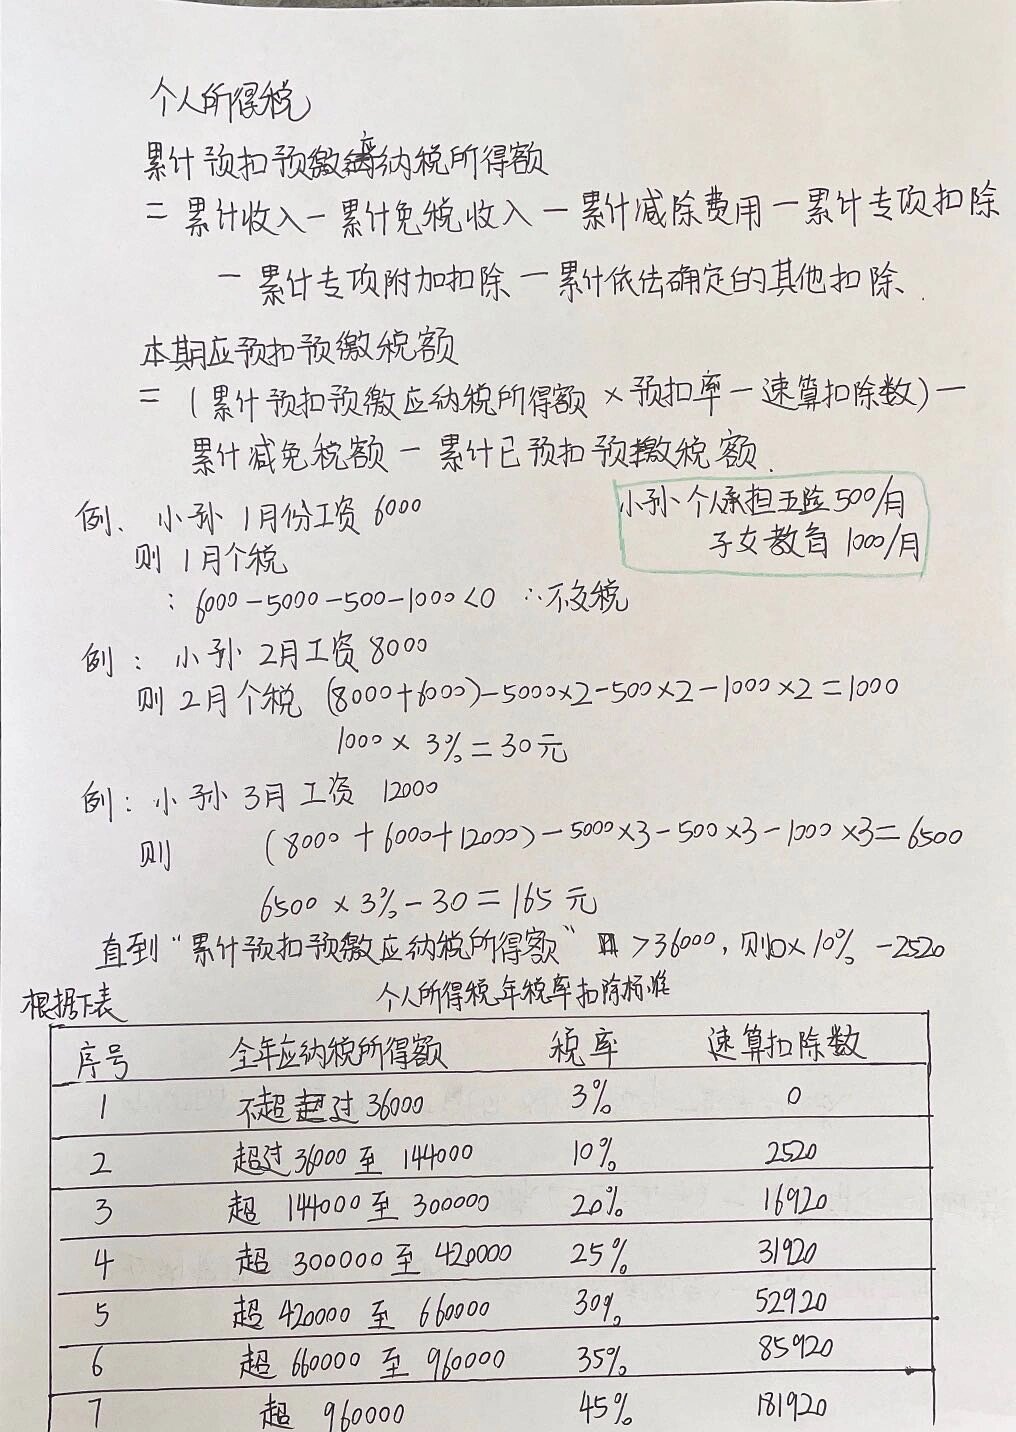 个人所得税
累计预扣预缴应纳税所得额
= 累计收入 - 累计免税收入 - 累计减除费用 - 累计专项扣除
- 累计专项附加扣除 - 累计依法确定的其他扣除.
本期应预扣预缴税额
= (累计预扣预缴应纳税所得额 × 预扣率 - 速算扣除数) -
累计减免税额 - 累计已预扣预缴税额.
小孙个人承担五险500/月
子女教育 1000/月
例、小孙1月份工资6000
则1月个税
: 6000-5000-500-1000<0 ∴不交税
例: 小孙2月工资8000
则2月个税 (8000+6000)-5000×2-500×2-1000×2=1000
1000 × 3% = 30元
例: 小孙3月工资 12000
则 (8000+6000+12000)-5000×3-500×3-1000×3=6500
6500 × 3% - 30 = 165元
直到“累计预扣预缴应纳税所得额” >36000, 则□×10% -2520
根据下表 个人所得税年税率扣除标准
序号 全年应纳税所得额 税率 速算扣除数
1 不超过36000 3% 0
2 超过36000至144000 10% 2520
3 超 144000至300000 20% 16920
4 超 300000至420000 25% 31920
5 超 420000至660000 30% 52920
6 超 660000至960000 35% 85920
7 超 960000 45% 181920